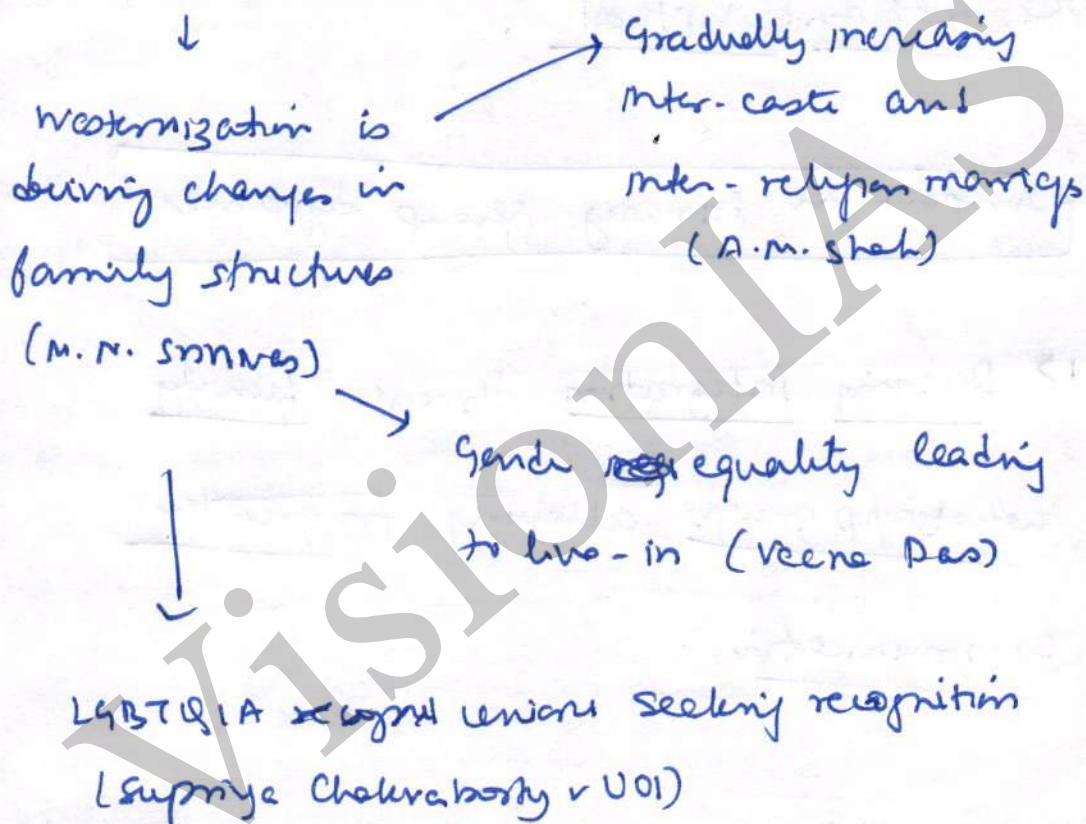 Westernization is
driving changes in
family structures
(M. N. Srinivas)
Gradually increasing
inter-caste and
inter-religion marriages
(A.M. Shah)
Gender equality leading
to live-in (Veena Das)
LGBTQIA unions seeking recognition
(Supriya Chakraborty v UOI)
VisionIAS